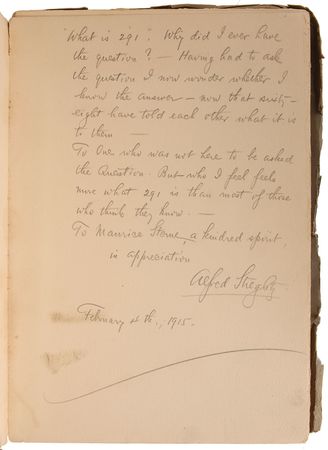 "What is 291". Why did I ever have
the question? — Having had to ask
the question I now wonder whether I
know the answer — now that sixty-
eight have told each other what it is
to them —
To One who was not here to be asked
the Question. But who I feel feels
more what 291 is than most of those
who think they know. —
To Maurice Sterne, a kindred spirit,
in appreciation
Alfred Stieglitz.
February 4th., 1915.